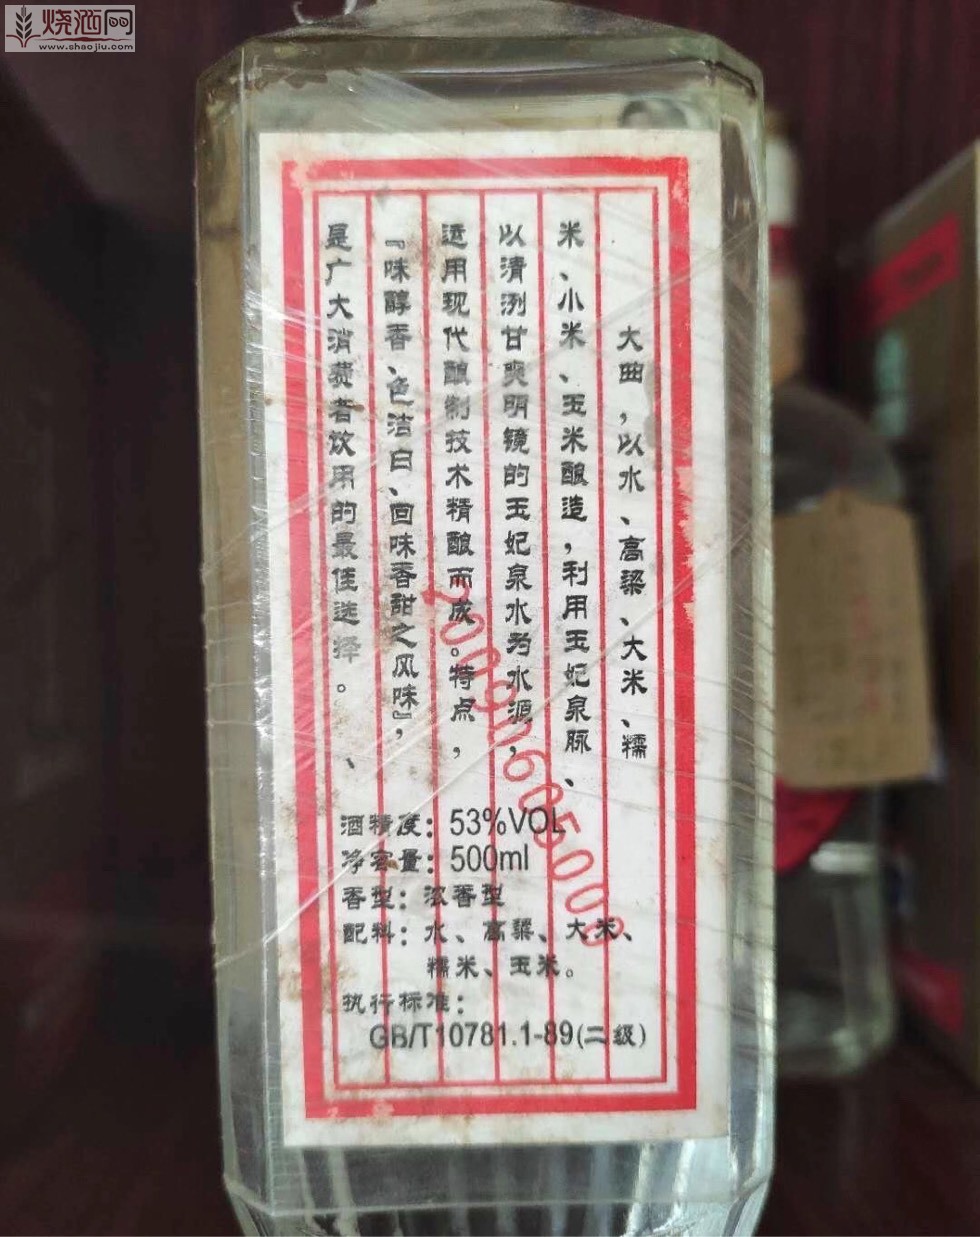 烧酒网
www.shaojiu.com
大曲，以水、高粱、大米、糯
米、小米、玉米酿造，利用玉妃泉脉、
以清洌甘爽明镜的玉妃泉水为水源，
运用现代酿制技术精酿而成。特点，
『味醇香、色洁白、回味香甜之风味』，
是广大消费者饮用的最佳选择。、
酒精度：53%VOL
净容量：500ml
香型：浓香型
配料：水、高粱、大米、
糯米、玉米。
执行标准：
GB/T10781.1-89(二级)